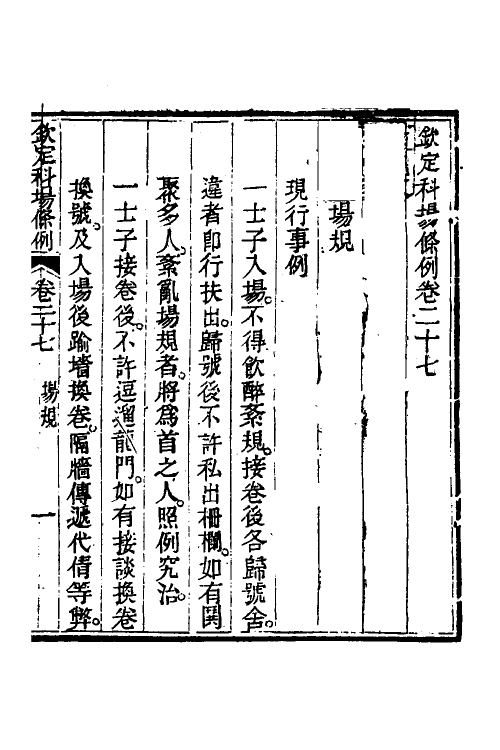 欽定科場條例卷二十七
場規
現行事例
一士子入場。不得飲醉紊規。接卷後各歸號舍。
違者即行扶出。歸號後不許私出柵欄。如有鬨
聚多人。紊亂場規者。將為首之人。照例究治。
一士子接卷後。不許逗遛龍門。如有接談換卷
換號。及入場後踰墻換卷。隔牆傳遞代倩等弊。
欽定科場條例 卷二十七 場規 一